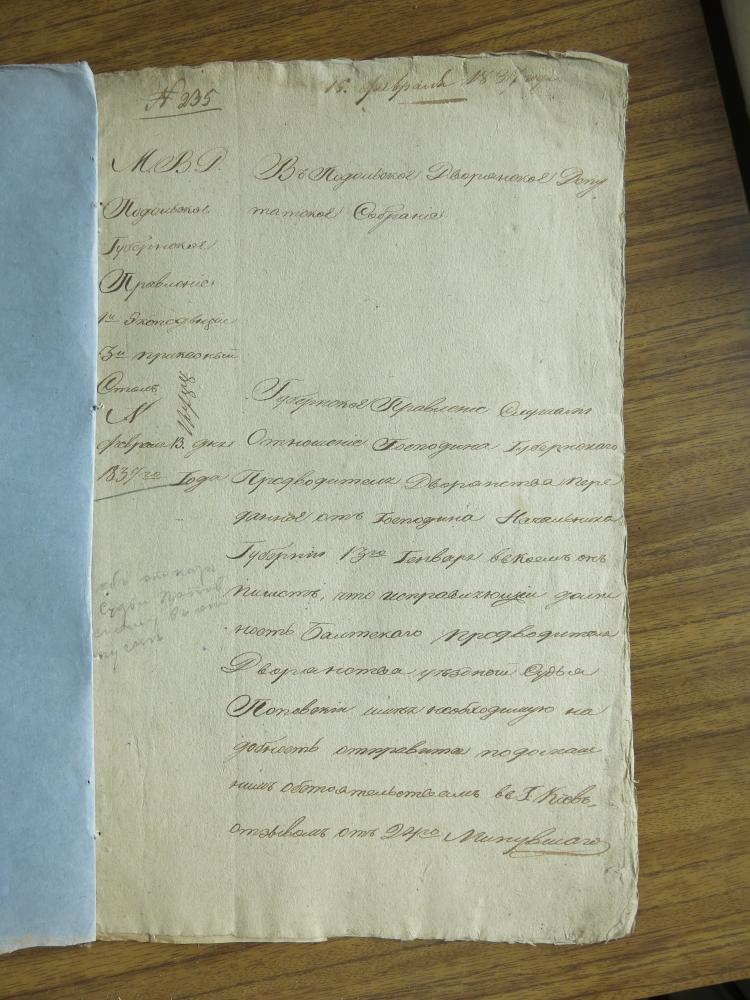 № 235
15. февраля 1837 года
М. В. Д.
Подольское
Губернское
Правление
1й Экспедиции
3й приказный
Столъ
№
Февраля 13. дня
1837го Года
Въ Подольское Дворянское Депу
татское Собрание
Губернское Правление Слушали
Отношение Господина Губернского
Предводителя Дворянства пере
данное отъ Господина Начальника
Губернии 13го Генваря въ коемъ онъ
пишетъ, что исправляющий долж
ность Балтского Предводителя
Дворянства уездный Судья
Поповский имея необходимую на
добность отправится по домаш
нимъ обстоятельствамъ въ Г. Киевъ,
отзывомъ отъ 24го Минувшаго